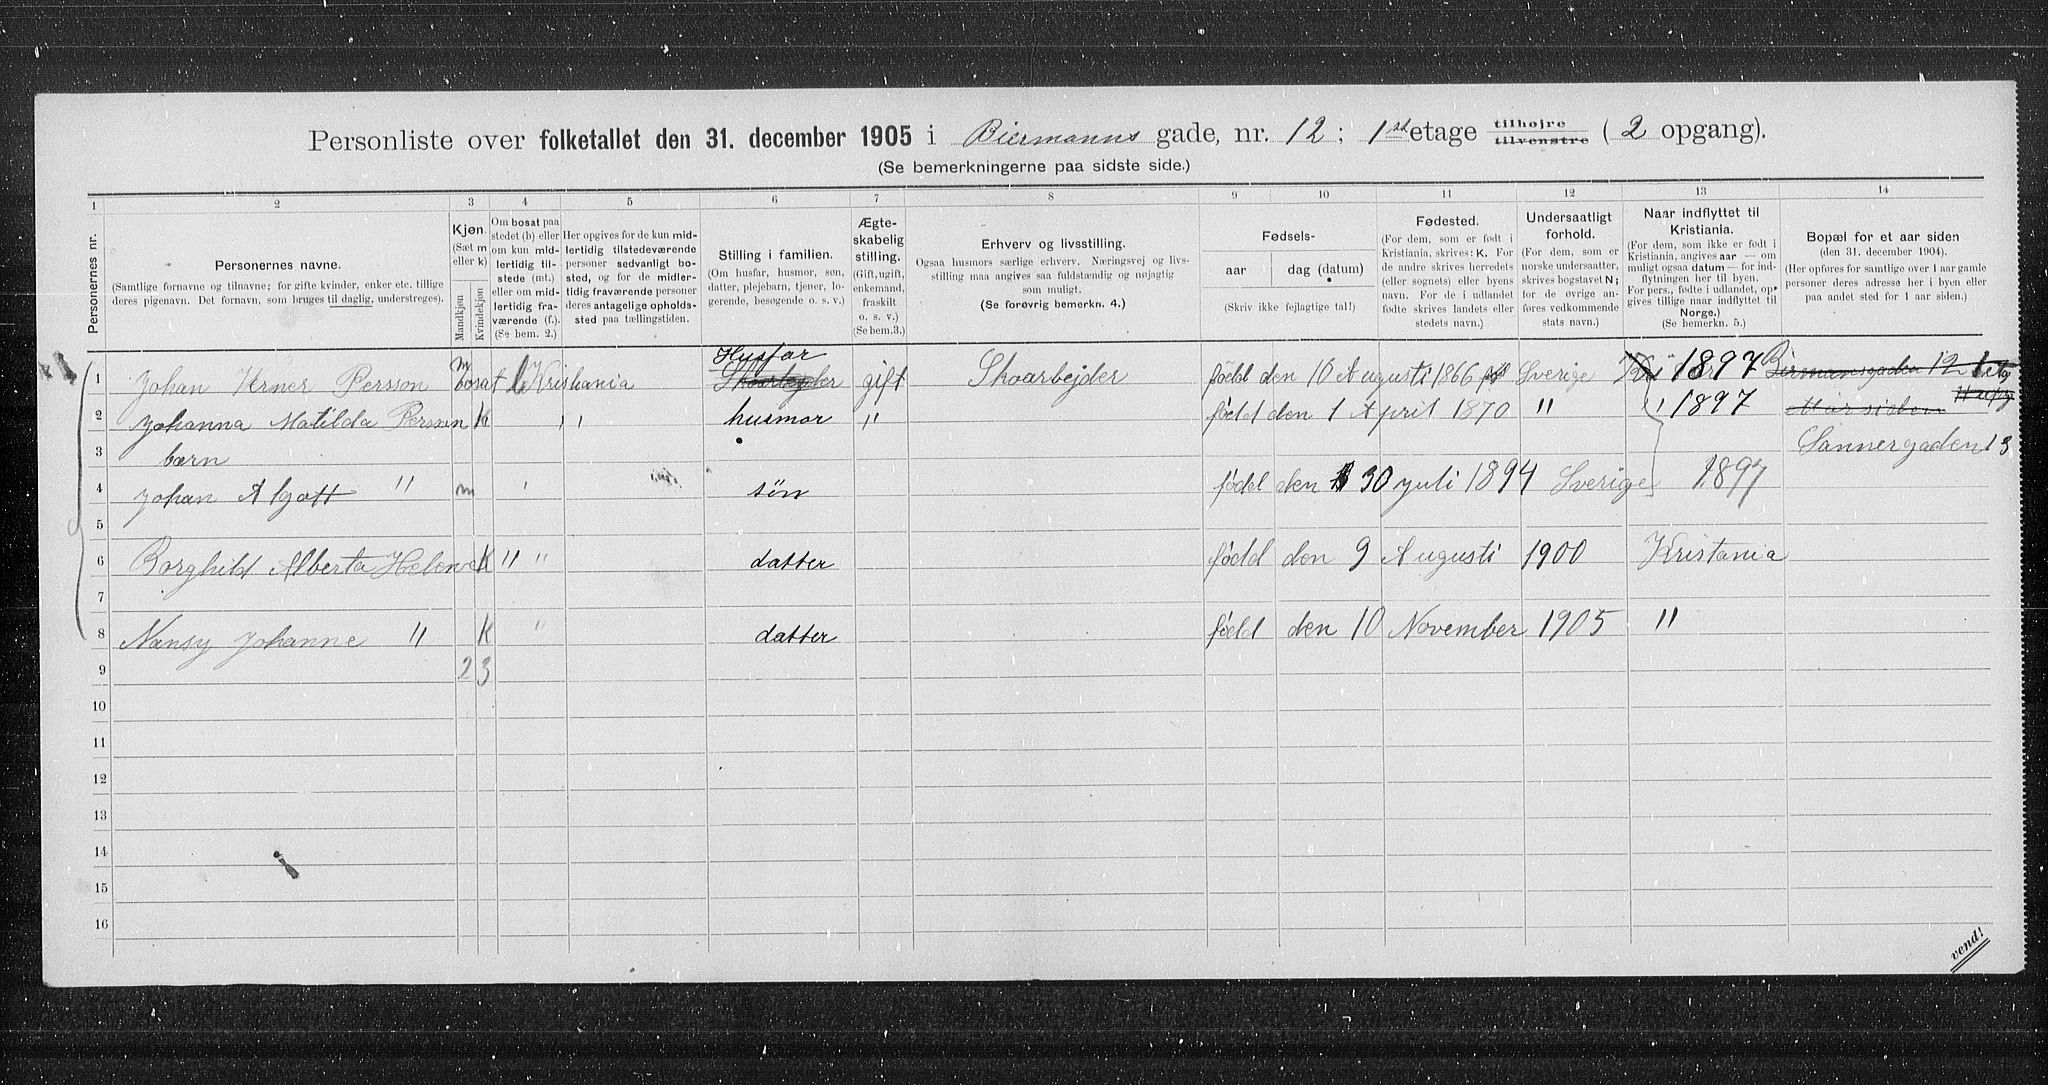 Personliste over folketallet den 31. december 1905 i Biermanns gade, nr. 12; 1ste etage tilhøjre tilvenstre (2 opgang).
(Se bemerkningerne paa sidste side.)
1 2 3 4 5 6 7 8 9 10 11 12 13 14
Personernes nr.
Personernes navne.
(Samtlige fornavne og tilnavne; for gifte kvinder, enker etc. tillige
deres pigenavn. Det fornavn, som bruges til daglig, understreges).
Kjøn.
(Sæt m
eller k)
Mandkjøn
Kvindekjøn
Om bosat paa
stedet (b) eller
om kun mid-
lertidig til-
stede (mt.)
eller om mid-
lertidig fra-
værende (f.).
(Se bem. 2.)
Her opgives for de kun mid-
lertidig tilstedeværende
personer sedvanligt bo-
sted, og for de midler-
tidig fraværende personer
deres antagelige opholds-
sted paa tællingstiden.
Stilling i familien.
(Om husfar, husmor, søn,
datter, plejebarn, tjener, lo-
gerende, besøgende o. s. v.)
Ægte-
skabelig
stilling.
(Gift, ugift,
enkemand,
fraskilt
o. s. v.)
(Se bem.3.)
Erhverv og livsstilling.
Ogsaa husmors særlige erhverv. Næringsvej og livs-
stilling maa angives saa fuldstændig og nøjagtig
som muligt.
(Se forøvrig bemerkn. 4.)
Fødsels-
aar dag (datum)
(Skriv ikke fejlagtige tal!)
Fødested.
(For dem, som er født i
Kristiania, skrives: K. For
de andre skrives herredets
(eller sognets) eller byens
navn. For de i udlandet
fødte skrives landets eller
stedets navn.)
Undersaatligt
forhold.
(For dem, som er
norske undersaatter,
skrives bogstavet N;
for de øvrige an-
føres vedkommende
stats navn.)
Naar indflyttet til
Kristiania.
(For dem, som ikke er født i
Kristiania, angives aar — om
muligt ogsaa datum — for ind-
flytningen her til byen.
For pers., fødte i udlandet, op-
gives tillige naar indflyttet til
Norge.)
(Se bemerkn. 5.)
Bopæl for et aar siden
(den 31. december 1904).
(Her opføres for samtlige over 1 aar gamle
personer deres adresse her i byen eller
paa andet sted for 1 aar siden.)
1 Johan Verner Persson m bosat b Kristiania Husfar Skoarbejder gift Skoarbejder född den 10 Augusti 1866 Sverige 1897 Birmansgaden 12 1 etg
2 Johanna Matilda Persson K " husmor " född den 1 April 1870 " " 1897
3 barn Sannergaden 13
4 Johan Algott " m ' søn född den 30 juli 1894 Sverige 1897
5
6 Borghild Alberta Helene K " " datter född den 9 Augusti 1900 Kristania
7
8 Nansy Johanne " K " datter född den 10 November 1905 "
9 2 3
10
11
12
13
14
15
16
vend!